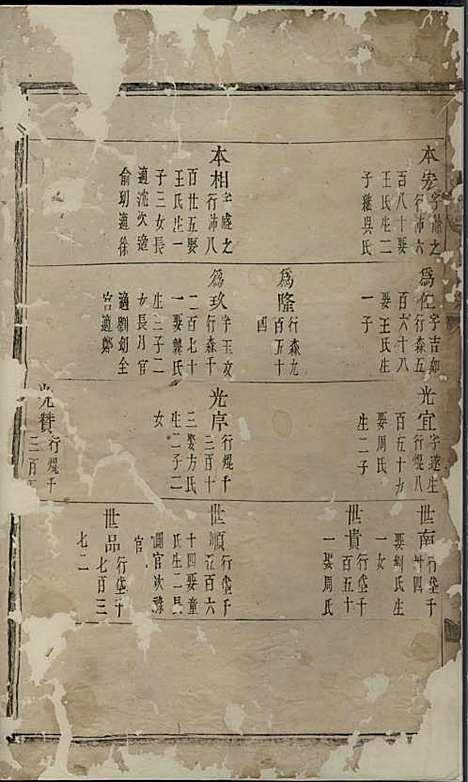 本宏字瀛之
行沛六
百八十娶
王氏生二
子繼吳氏
本相字盛之
行沛八
百廿五娶
王氏生一
子三女長
適沈次適
俞幼適徐
為仁字吉
行森五
百六十八
娶王氏生
一子
為隆行森九
百五十
四
為玖字玉
行森千
二百七十
一娶龔氏
生三子二
女長月官
適劉幼全
宮適鄭
光宜字遂生
行焜八
百五十九
娶周氏
生二子
光京行焜千
三百十
三娶方氏
生二子二
女
光贊行焜千
三百
世南行垡千
卅四
娶劉氏生
一女
世貴行垡千
百五十
一娶周氏
世順行垡千
五百六
十四娶童
氏生二呂
圓官次發
官
世品行垡千
七百三
七二